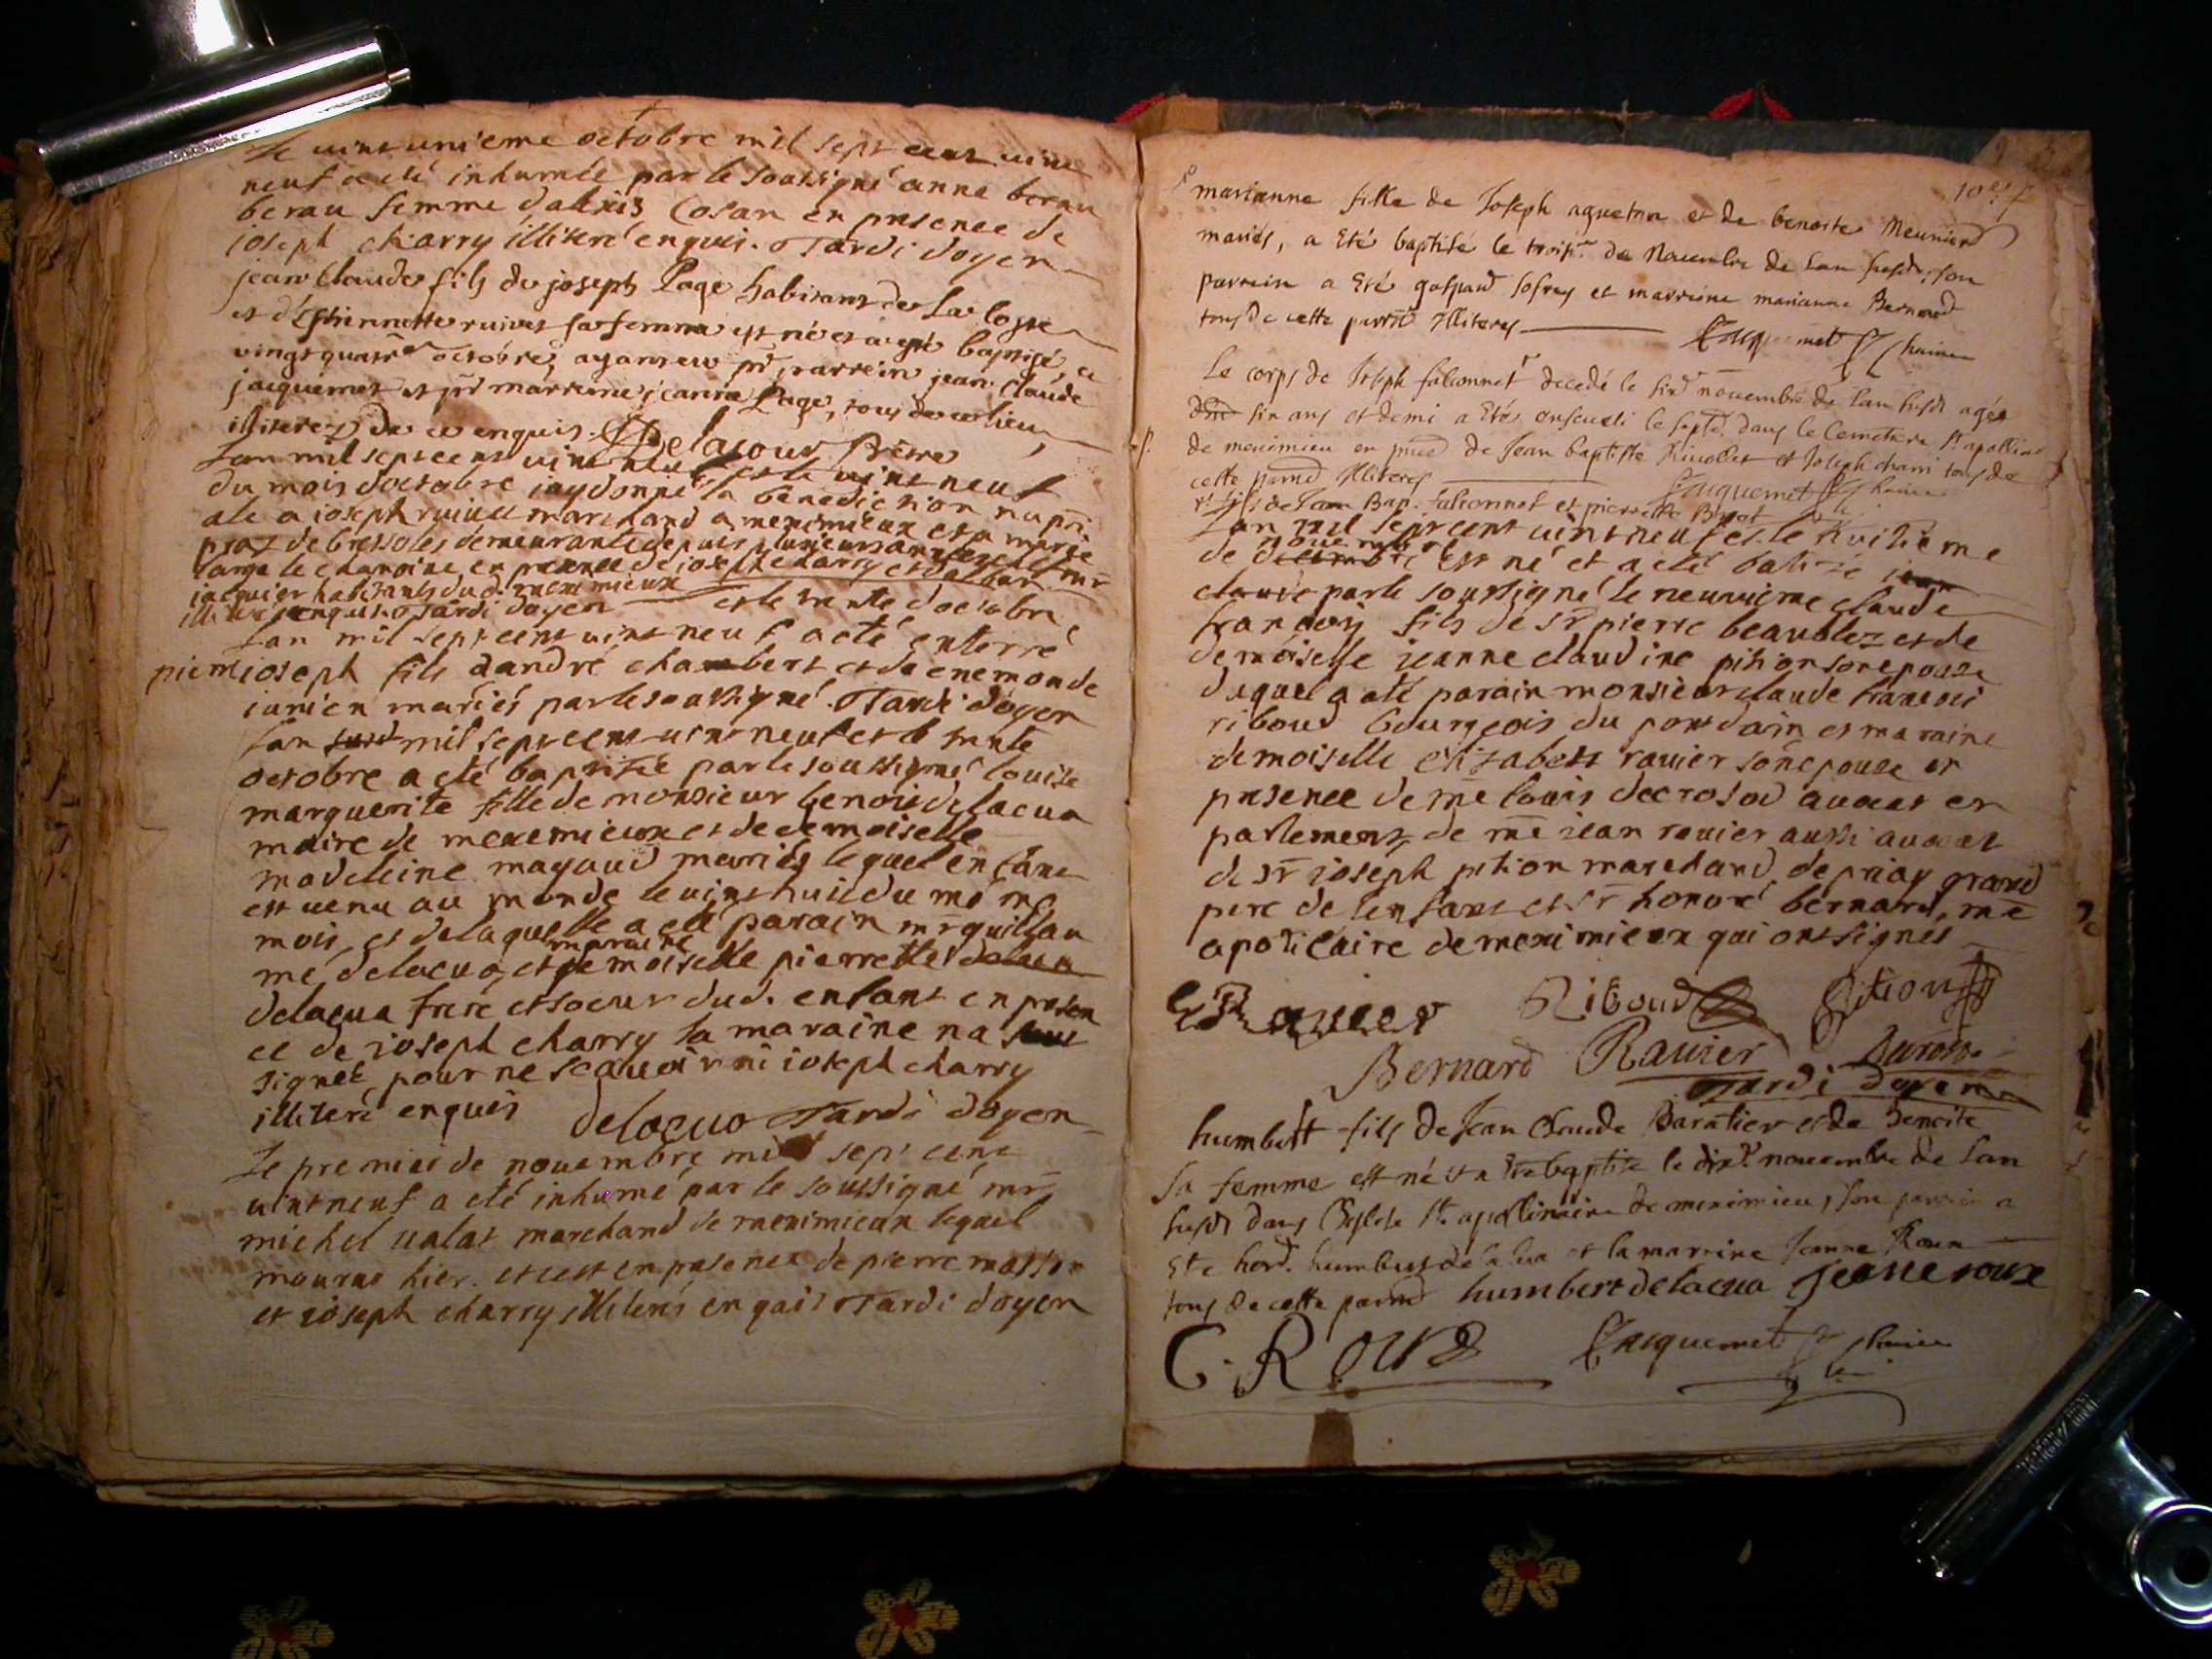 Le vint unieme octobre mil sept cent vint
neuf a eté inhumée par le soussigné anne berau
berau femme dalexis Cosan en presence de
ioseph charry illiteré enquis. Tardi doyen
jean Claude fils de joseph Page habitant de La
et d'Estiennette ruivet sa femme est né et a eté baptisé, ce
vingt quatre octobre, ayant eu pr parrein jean Claude
jacquemet et pr marreine jeanne Page, tous de ce lieu
illiterez de ce enquis. Delacour Prêtre
Lan mil sept cent vint neuf et le vint neuf
du mois doctobre iay donné la benediction nupti
ale a ioseph ruivet marchand a meximieux et a marie
praz de bressoles demeurante depuis plusieurs années chez mr
le chanoine en presence de ioseph charry et
iacquier habitants dud. meximieux
illiteré enquis. Tardi doyen et le trente doctobre
Lan mil sept cent vint neuf a eté enterré
ioseph fils dandré chambert et de enemonde
iunien mariés par le soussigné. Tardi doyen
Lan mil sept cent vint neuf et le trente
octobre a eté baptisée par le soussigné louise
marguerite fille de monsieur benoit delacua
maire de meximieux et de demoiselle
madeleine mayaud mariés lequel enfant
est venu au monde le vint huit du même
mois, et de laquelle a eté parain mr guillau
maraine
me delacua, et demoiselle pierrette
delacua frere et soeur dud. enfant en presen
ce de ioseph charry la maraine na
signée pour ne scavoir ni ioseph charry
illiteré enquis delacua Tardi doyen
Le premier de novembre mil sept cent
vint neuf a eté inhumé par le soussigné mr
michel valat marchand de meximieux lequel
mourut hier. et cest en presence de pierre masson
et ioseph charry illiterés enquis Tardi doyen
marianne fille de Joseph agueton et de benoite Meunier
mariés, a Eté baptisé le troisie. de Novembre de Lan susdt, son
parrein a Eté gaspard Sofrey et marreine marianne Bernard
tous de cette parroisse Illiteres Jacquemet
Le corps de Joseph falconnet decedé le six novembre de Lan susdt agée
six ans et demi a Eté enseveli le sept. dans le Cemetiere St apollinaire
de meximieu en pnce de Jean baptiste et Joseph charri tous de
cette parroisse Illiteres Jacquemet
fils de Jean Bap. falconnet et pierrette
Lan mil sept cent vint neuf et le huitieme
novembre
de decembre est né et a eté batizé jean
claude par le soussigné le neuvieme claude
francois fils de sr pierre beaublez et de
demoiselle ieanne claudine pition son epouse
duquel a eté parain monsieur claude francois
riboud bourgeois du pont dain et maraine
demoiselle elizabett ravier son epouse en
presence de me louis decrosod avocat en
parlement, de me iean ravier aussi avocat
de sr ioseph pition marchand de priay grand
pere de lenfant et sr honoré bernard, me
apoticaire de meximieux qui ont signés
Ravier Riboud Pition
Bernard Ravier
Tardi doyen
humbert fils de Jean Claude Baratier et de benoite
Sa femme est né et a Ete baptisé le dix novembre de Lan
susdt dans l'Eglise St. apollinaire de meximieu, son parrein a
Ete hon. humbert de la cua et la marrine Jeanne Roux
tous de cette parroisse humbert delacua Jeanne roux
C. Roux Jacquemet